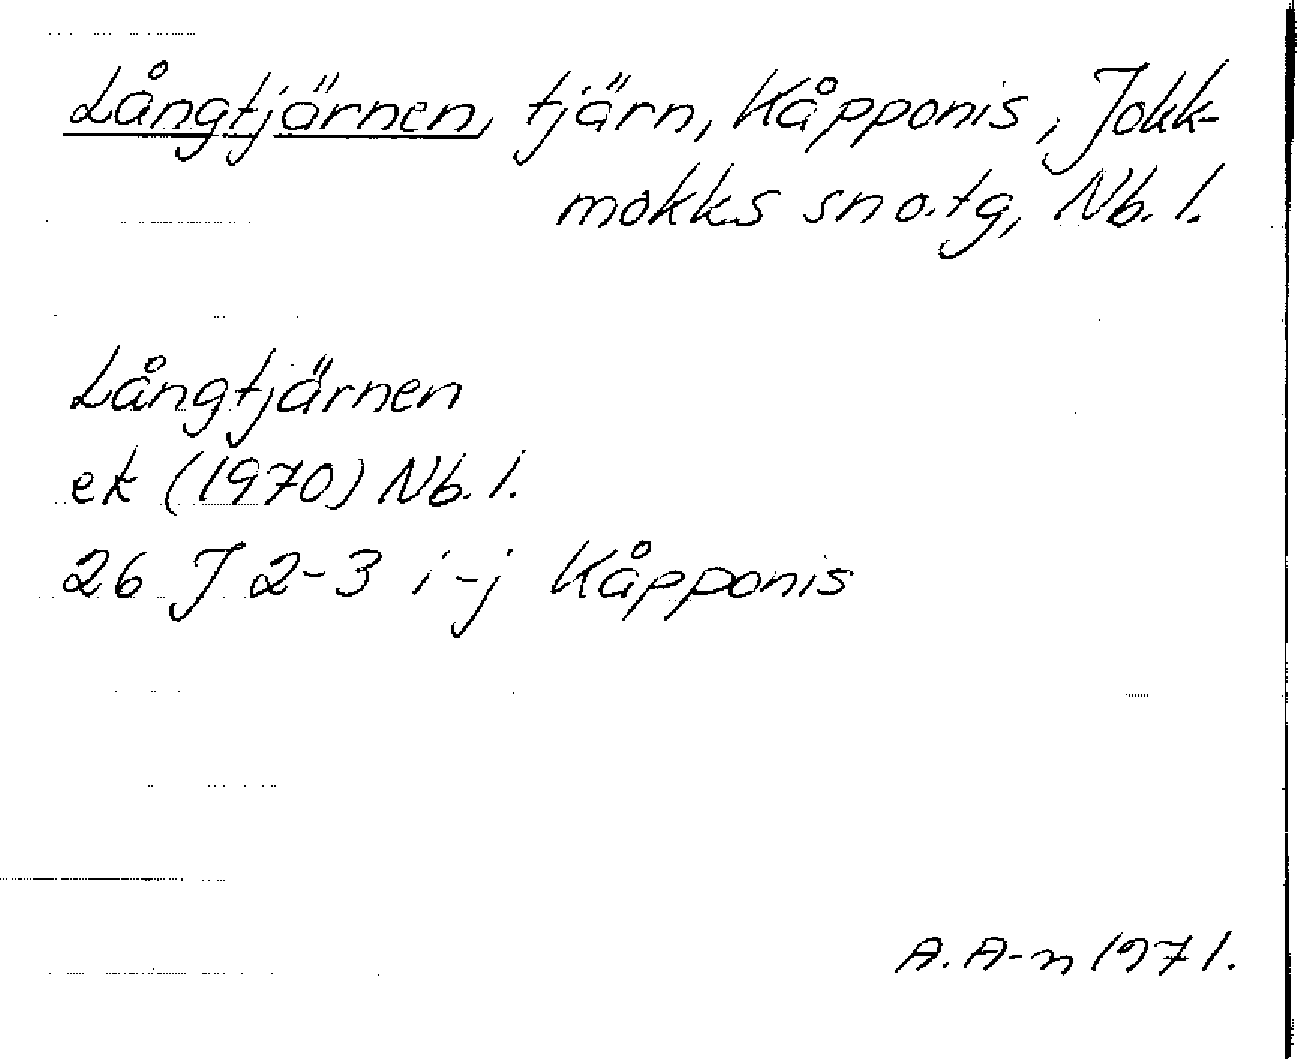 Långtjärnen, tjärn, Kåpponis, Jokk-
mokks sn o. tg, Nb. l.
Långtjärnen
ek (1970) Nb. l.
26 J 2-3 i-j Kåpponis
A. A-n 1971.